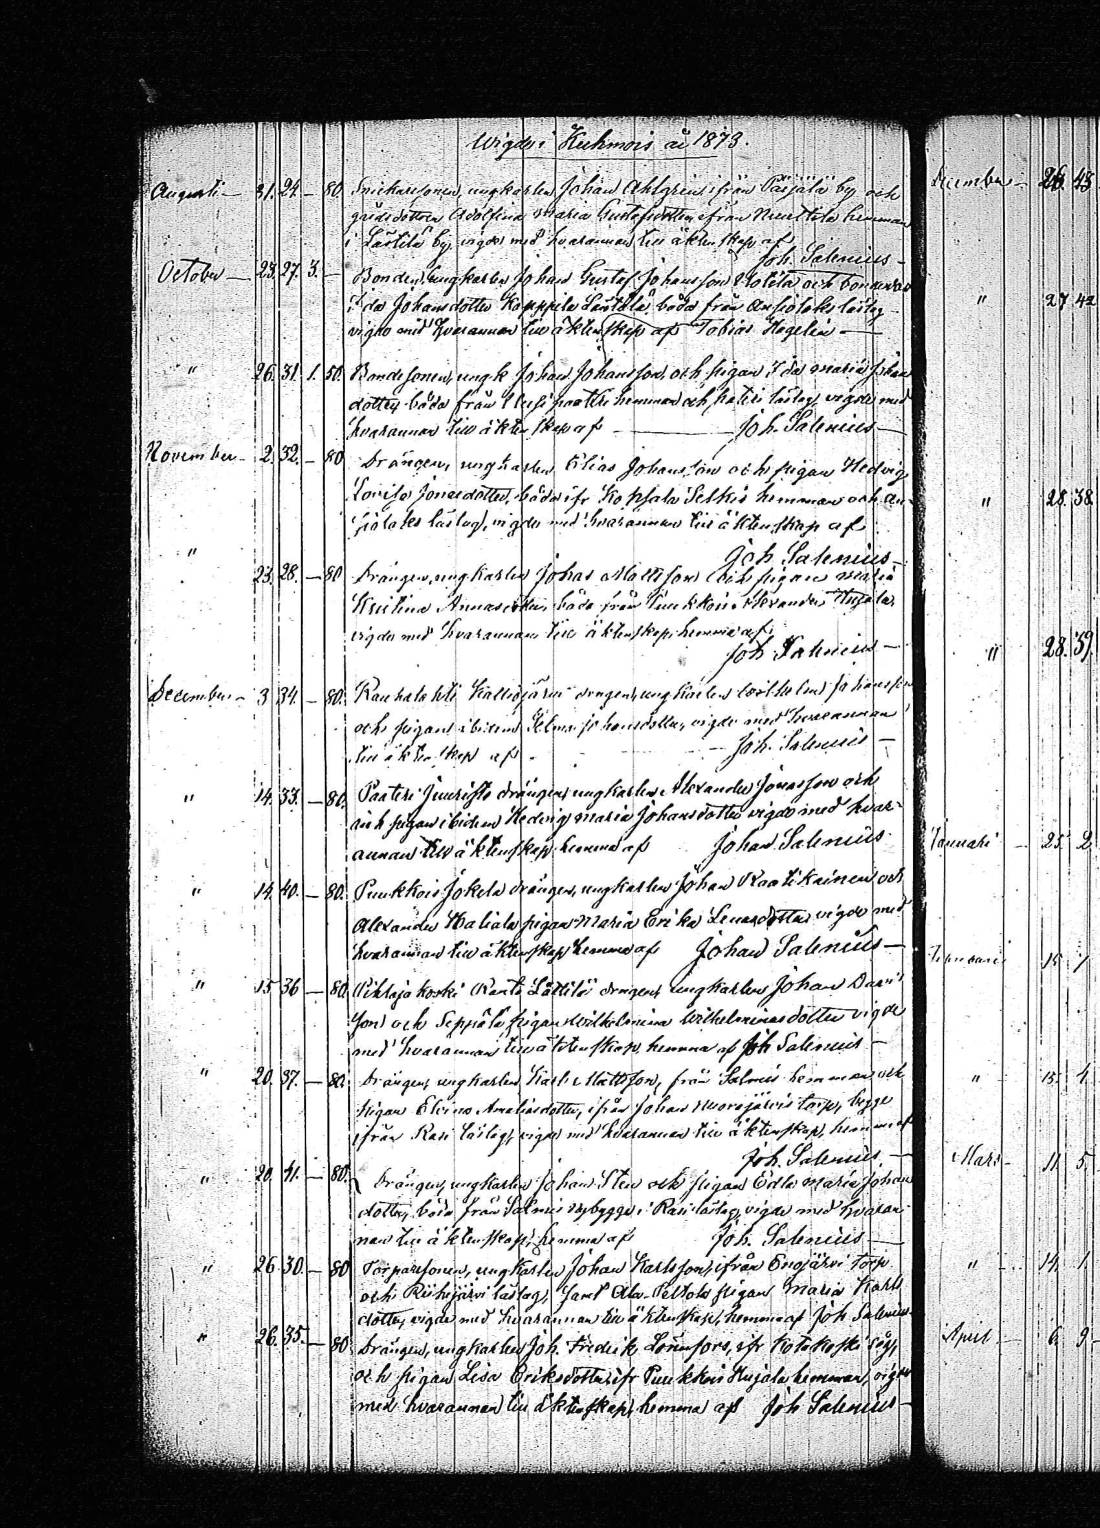 Wigde i Kuhmois år 1873.
Augusti 31. 24. — 80. Snickaresonen, ungkarlen Johan Ahlgren ifrån Päijälä by och
Adolfina Maria Gustafsdotter, ifrån hemman
i Lästilä by, vigde med hvarannan till äktenskap af
Joh. Salenius
October 23. 27. 3. — Bonden, ungkarlen Johan Gustaf Johansson och
Ida Johansdotter Kauppila Lästilä, båda från läslag
vigde med hvarannan till äktenskap af Tobias Hegelin
" 26. 31. 1. 50. Bondesonen, ungk Johan Johansson och pigan Ida Maria Johans
dotter, båda från hemman och läslag, vigde med
hvarannan till äktenskap af Joh. Salenius
November 2. 32. — 80 Drängen, ungkarlen Elias Johansson och pigan Hedvig
Lovisa Jonasdotter, båda ifr Kopsala Selkis hemman och An-
läslag, vigde med hvarannan till äktenskap af
Joh. Salenius
" 23. 28. — 80 Drängen, ungkarlen Johan Mattsson och pigan Maria
Kristina Annasdotter, båda från Puukkois Alexander Hujala,
vigde med hvarannan till äktenskap, hemma af
Joh. Salenius
December 3 34. — 80. drengen, ungkarlen Wilhelm Johansson
och pigan ibidem Johansdotter, vigde med hvarannan
till äktenskap af Joh. Salenius
" 14. 33. — 80. Paateri drängen, ungkarlen Alexander Jonasson och
pigan ibidem Hedvig Maria Johansdotter vigde med hvar-
annan till äktenskap hemma af Johan Salenius
" 14. 40. — 80. Puukkois Jokela drängen, ungkarlen Johan Raatikainen och
Alexander pigan Maria Erika Lenasdotter vigde med
hvarannan till äktenskap hemma af Johan Salenius
" 15 36 — 80. Ranta Lästilä drengen, ungkarlen Johan Davids
son och Seppälä pigan Wilhelmina Wilhelminasdotter vigde
med hvarannan till äktenskap, hemma af Joh Salenius
" 20. 37. — 80. Drängen, ungkarlen Karl Mattsson, från Salmis hemman och
pigan Elvina Amaliasdotter, ifrån Johan torp, begge
ifrån Rasi läslag, vigde med hvarannan till äktenskap, hemma af
Joh. Salenius
" 20. 41. — 80. Drängen, ungkarlen Johan Sten och pigan Edla Maria Johans
dotter, båda från Salmis nybygge i Rasi läslag, vigde med hvaran
nan till äktenskap, hemma af Joh. Salenius
" 26. 30. — 80 Torparesonen, ungkarlen Johan Karlsson, ifrån Enojärvi torp
och Riihijärvi läslag, samt Peltola pigan Maria Karls
dotter, vigde med hvarannan till äktenskap, hemma af Joh Salenius
" 26. 35. — 80 Drängen, ungkarlen Joh. Fredrik Lönnfors, ifr Kotakoski såg,
och pigan Lisa Eriksdotter, ifr Puukkois Hujala hemman, vigde
med hvarannan till äktenskap, hemma af Joh Salenius
December 26. 43
" 27. 42
" 28. 38.
" 28. 39.
Januari 25. 2
Februari 15 1
" 15. 4
Mars 11. 5.
" 14. 1.
April 6. 9